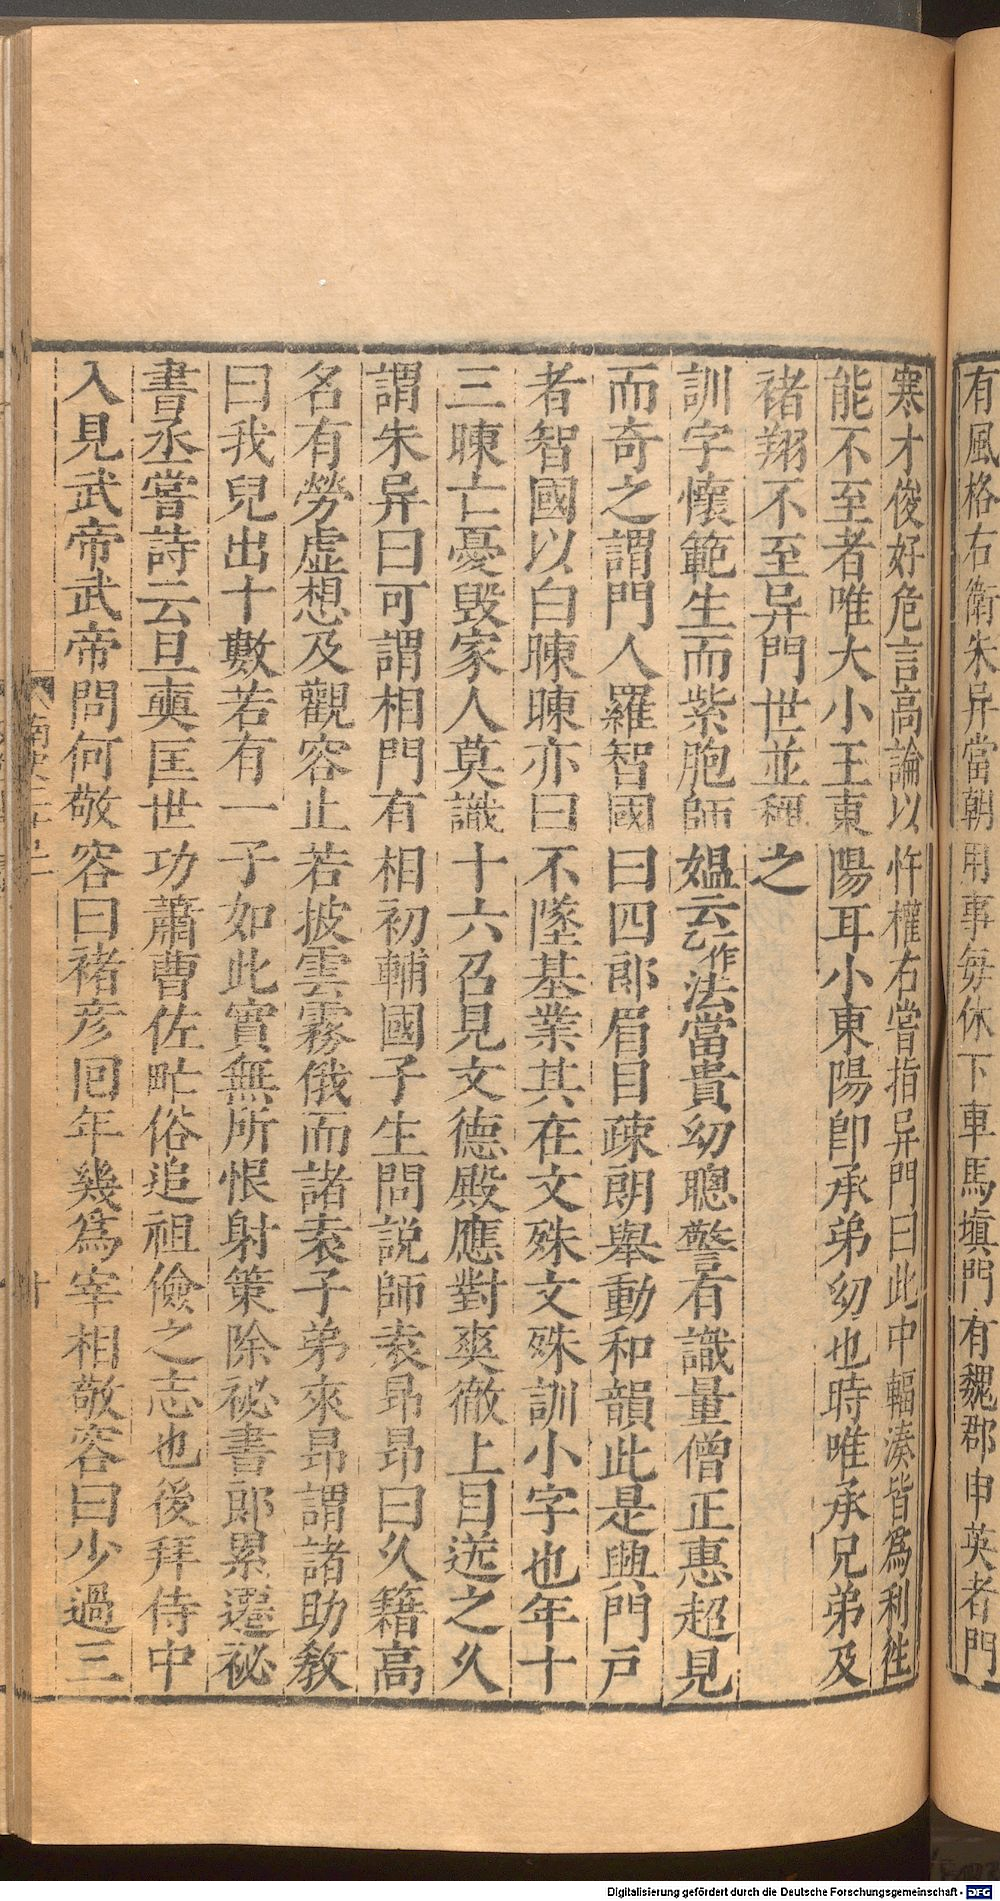 有風格右衛朱异當朝用事每休下車馬塡門有魏郡申英者門
寒才俊好危言高論以忤權右嘗指异門曰此中輻湊皆爲利往
能不至者唯大小王東陽耳小東陽卽承弟幼也時唯承兄弟及
褚翔不至异門世並稱之
訓字懷範生而紫胞師媪云乙作法當貴幼聰警有識量僧正惠超見
而奇之謂門人羅智國曰四郎眉目疎朗舉動和韻此是興門戸
者智國以白暕暕亦曰不墜基業其在文殊文殊訓小字也年十
三暕亡憂毀家人莫識十六召見文德殿應對爽徹上目送之久
謂朱异曰可謂相門有相初輔國子生問説師袁昂昂曰久籍高
名有勞虛想及觀容止若披雲霧俄而諸袁子弟來昂謂諸助教
曰我兒出十數若有一子如此實無所恨射策除祕書郎累遷祕
書丞嘗詩云旦奭匡世功蕭曹佐甿俗追祖儉之志也後拜侍中
入見武帝武帝問何敬容曰褚彥囘年幾爲宰相敬容曰少過三
南史二十二
十
Digitalisierung gefördert durch die Deutsche Forschungsgemeinschaft - DFG